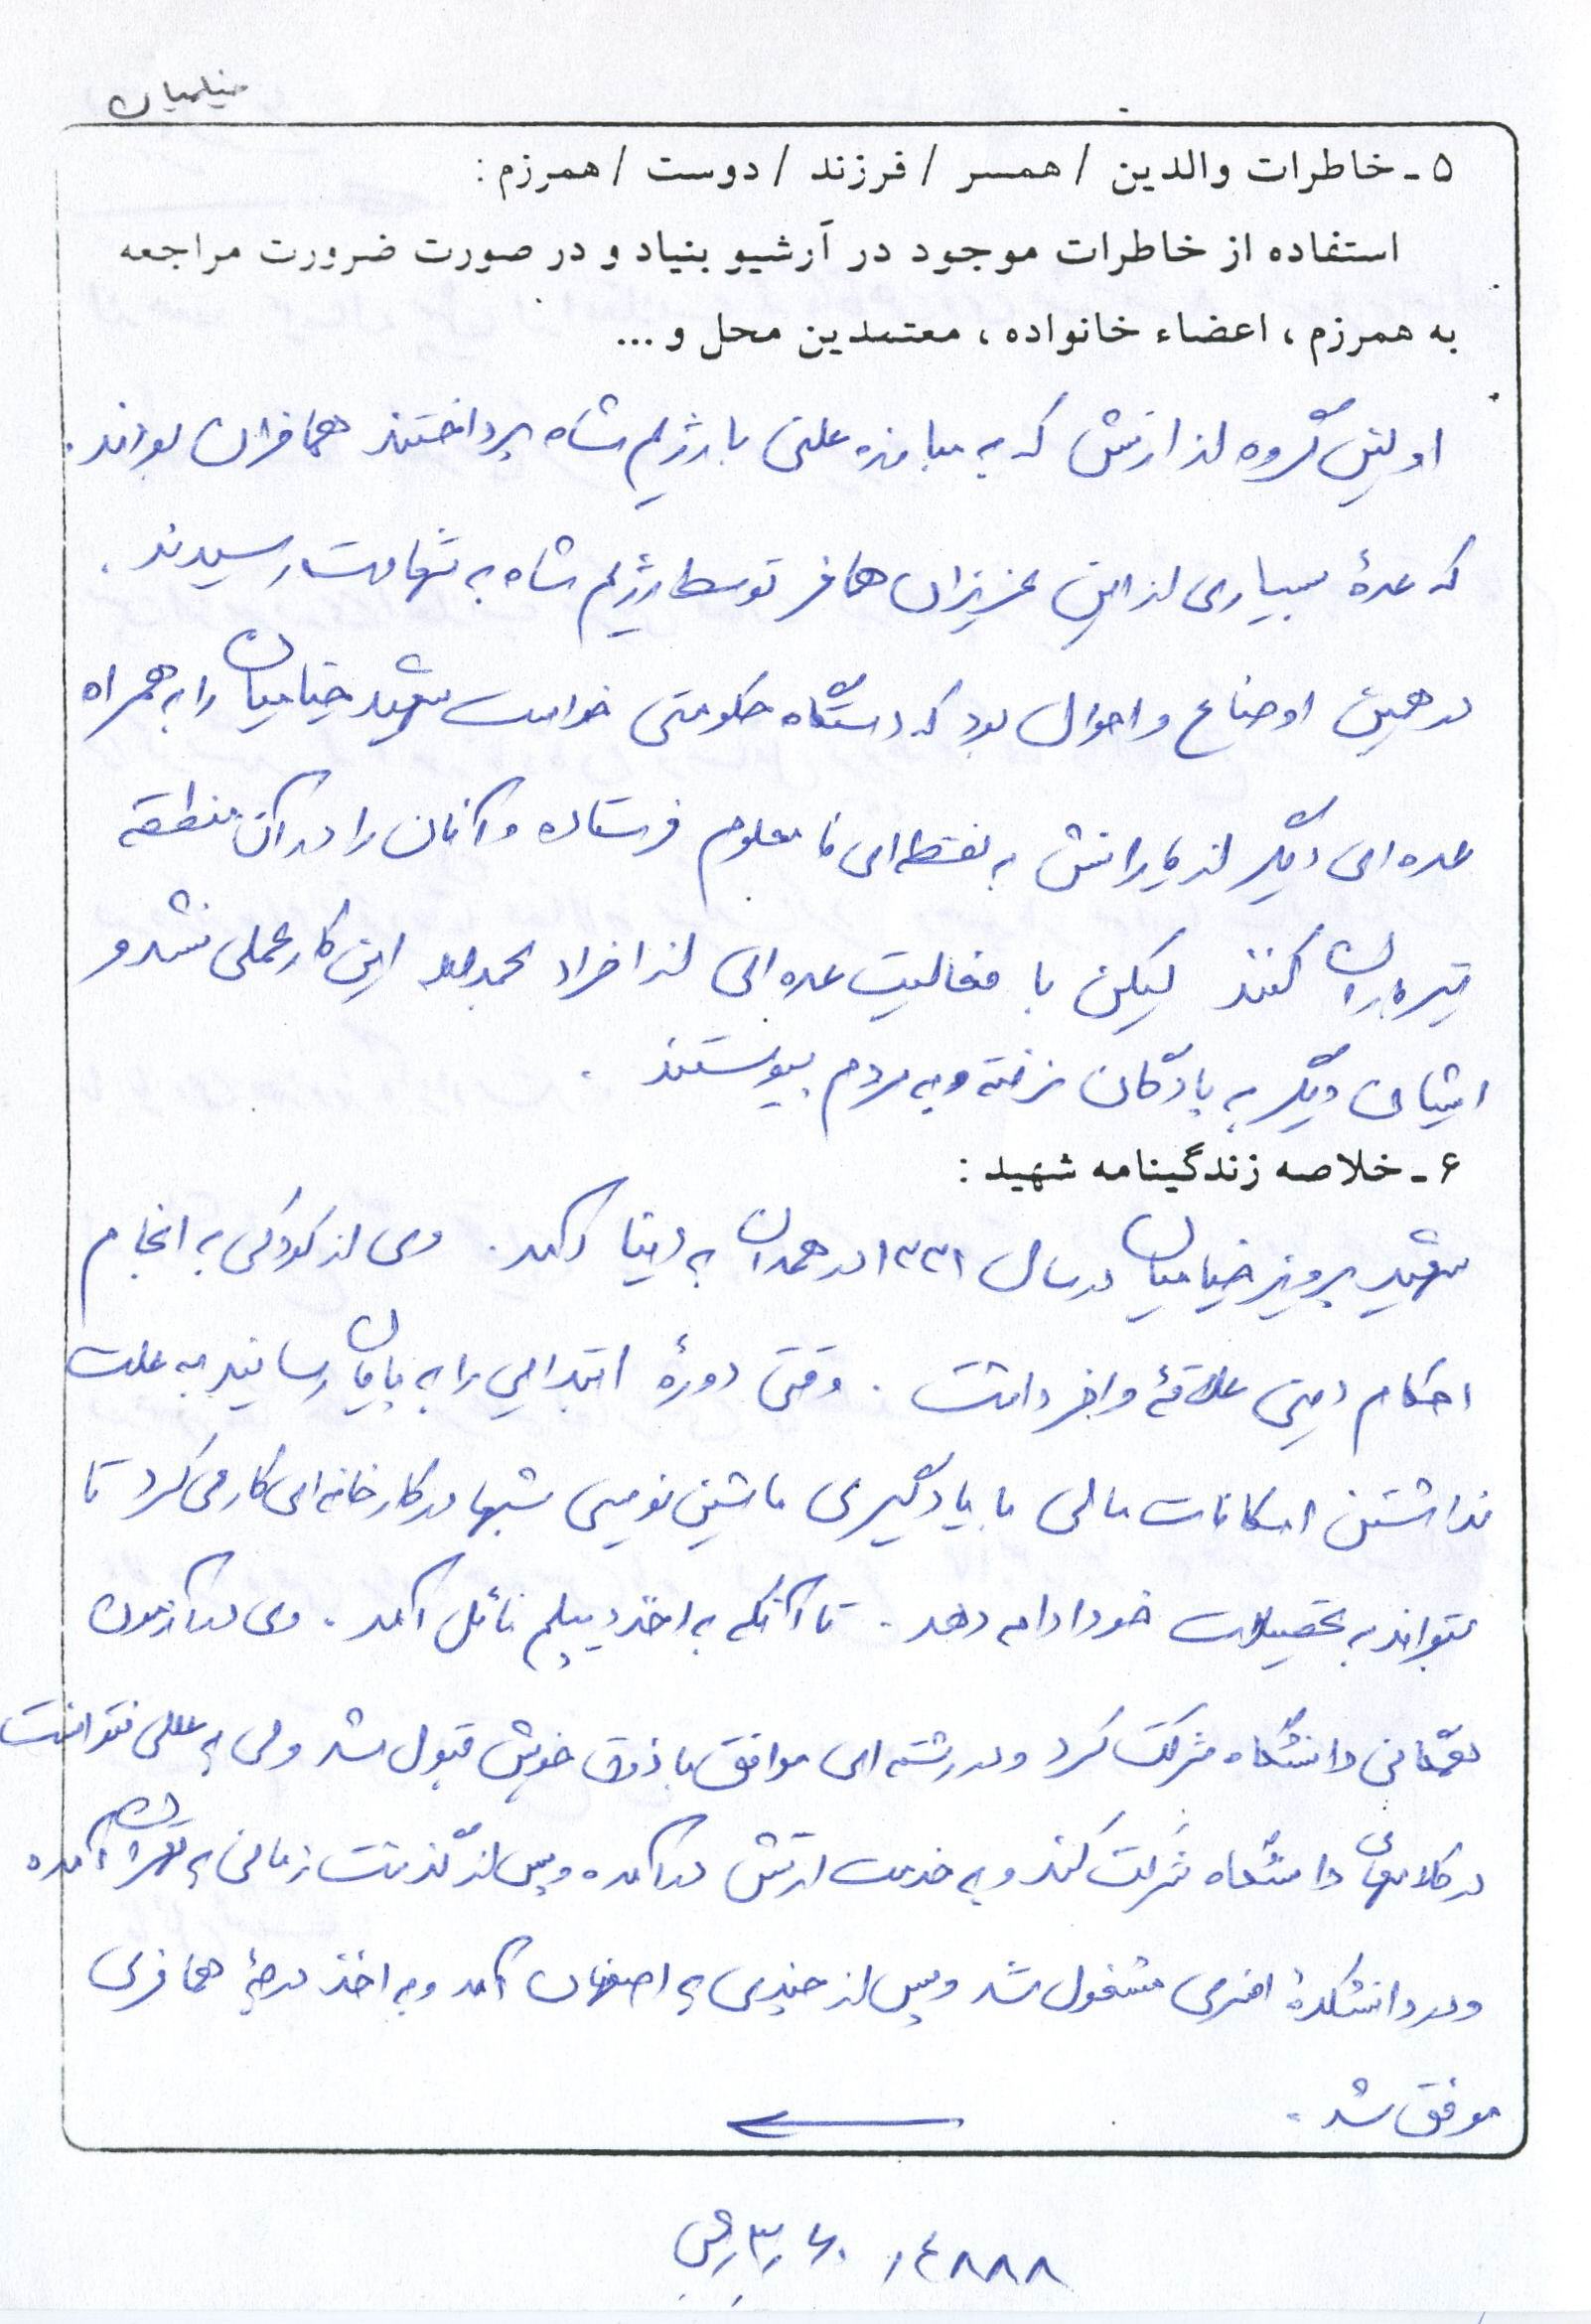 ضیامیان
۵ - خاطرات والدین / همسر / فرزند / دوست / همرزم :
استفاده از خاطرات موجود در آرشیو بنیاد و در صورت ضرورت مراجعه
به همرزم ، اعضاء خانواده ، معتمدین محل و ...
اولین گروه از ارتش که به مبارزه علنی با رژیم شاه پرداختند همافران بودند .
که عدهٔ بسیاری از این عزیزان همافر توسط رژیم شاه به شهادت رسیدند .
در همین اوضاع و احوال بود که دستگاه حکومتی خواست شهید ضیامیان را به همراه
عده ای دیگر از یارانش به نقطه ای نامعلوم فرستاده و آنان را در آن منطقه
تیرباران کنند لیکن با فعالیت عده ای از افراد بحمدالله این کار عملی نشد و
ایشان دیگر به پادگان نرفته و به مردم پیوستند .
۶ - خلاصه زندگینامه شهید :
شهید پرویز ضیامیان در سال ۱۳۳۱ در همدان به دنیا آمد . وی از کودکی به انجام
احکام دینی علاقهٔ وافر داشت . وقتی دورهٔ ابتدایی را به پایان رسانید به علت
نداشتن امکانات مالی با یادگیری ماشین نویسی شبها در کارخانه ای کار می کرد تا
بتواند به تحصیلات خود ادامه دهد . تا آنکه به اخذ دیپلم نائل آمد . وی در آزمون
همگانی دانشگاه شرکت کرد و در رشته ای موافق با ذوق خویش قبول شد ولی به عللی نتوانست
در کلاسهای دانشگاه شرکت کند و به خدمت ارتش درآمده و پس از گذشت زمانی به تهران آمده
و در دانشکدهٔ افسری مشغول شد و پس از چندی به اصفهان آمد و به اخذ درجهٔ همافری
موفق شد .
۱۴۸۸۸